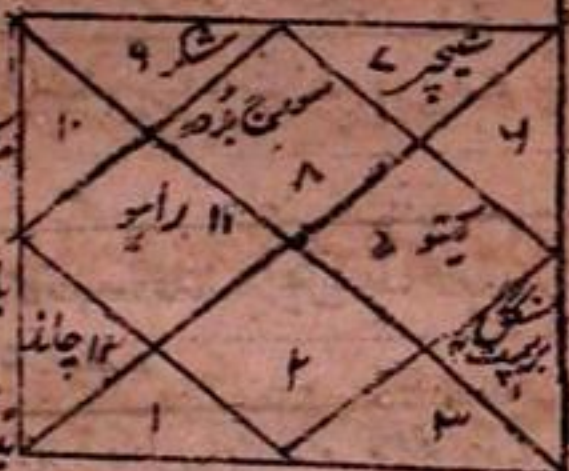 ۹ شکر
سنیچر ۷
۱۰
سورج بُدھ
۸
۶
۱۱ راہو
کیتو ۵
منگل
برہسپت ۴
۱۲ چاند
۲
۱
۳